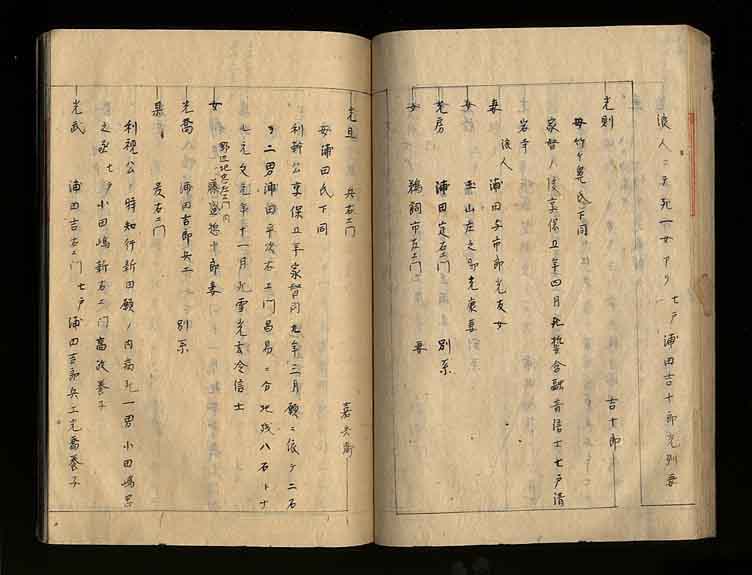 浪人ニ而死一女アリ 七戸浦田吉十郎光則妻
光則 吉十郎
母竹ヶ鼻氏下同
家督ノ後享保五年四月死 含融音信士七戸清
岩寺
浪人
妻 浦田与市郎光友女
女 玉山庄之 光 妻
光房 浦田定右エ門 別系
女 鵜飼市左エ門 妻
光且 兵右エ門 嘉兵衛
母浦田氏下同
利幹公享保五年家督同九年三月願ニ依テ二石
ヲ二男浦田平次右エ門昌易ニ分地残八石トナ
ル元文元年十一月死雪光玄冷信士
野辺地 左エ門内
女 藤 惣十郎妻
光喬 浦田吉郎兵エ 別系
某 友右エ門
利視公ノ時知行新田願ノ内病死一男小田嶋
之丞七戸小田嶋新右エ門高政養子
光武 浦田吉右エ門 七戸浦田吉郎兵エ光喬養子